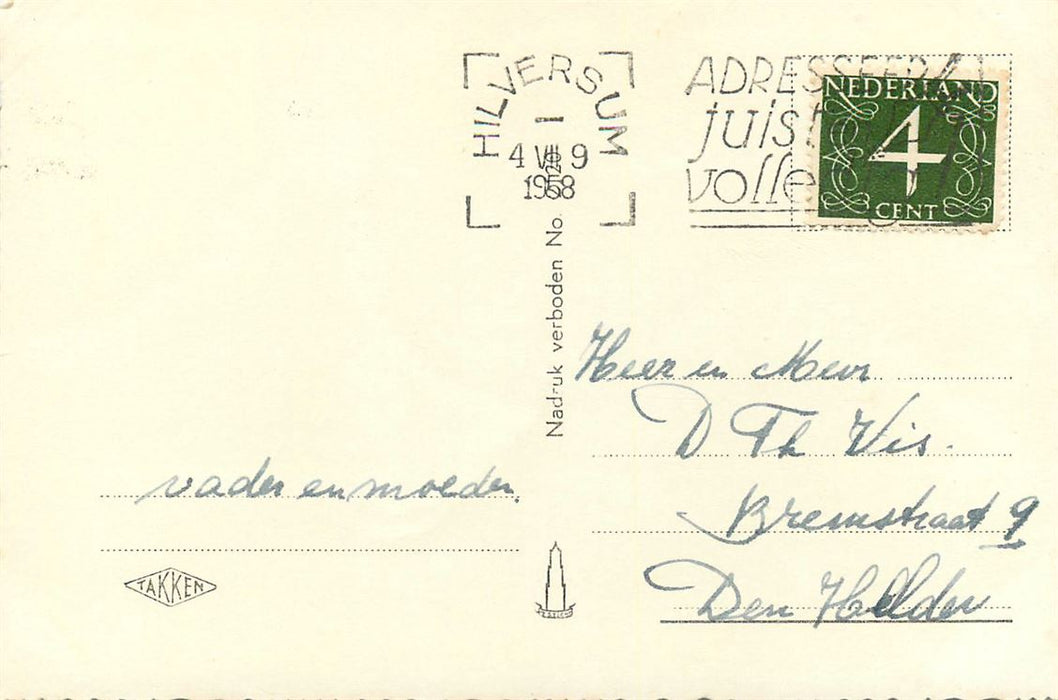 HILVERSUM
4 VII 9
1958
ADRESSEER
juist
volle
NEDERLAND
4
CENT
Nadruk verboden No.
Heer en Mevr
D Th Vis.
Bremstraat 9
Den Helder
vader en moeder.
TAKKEN